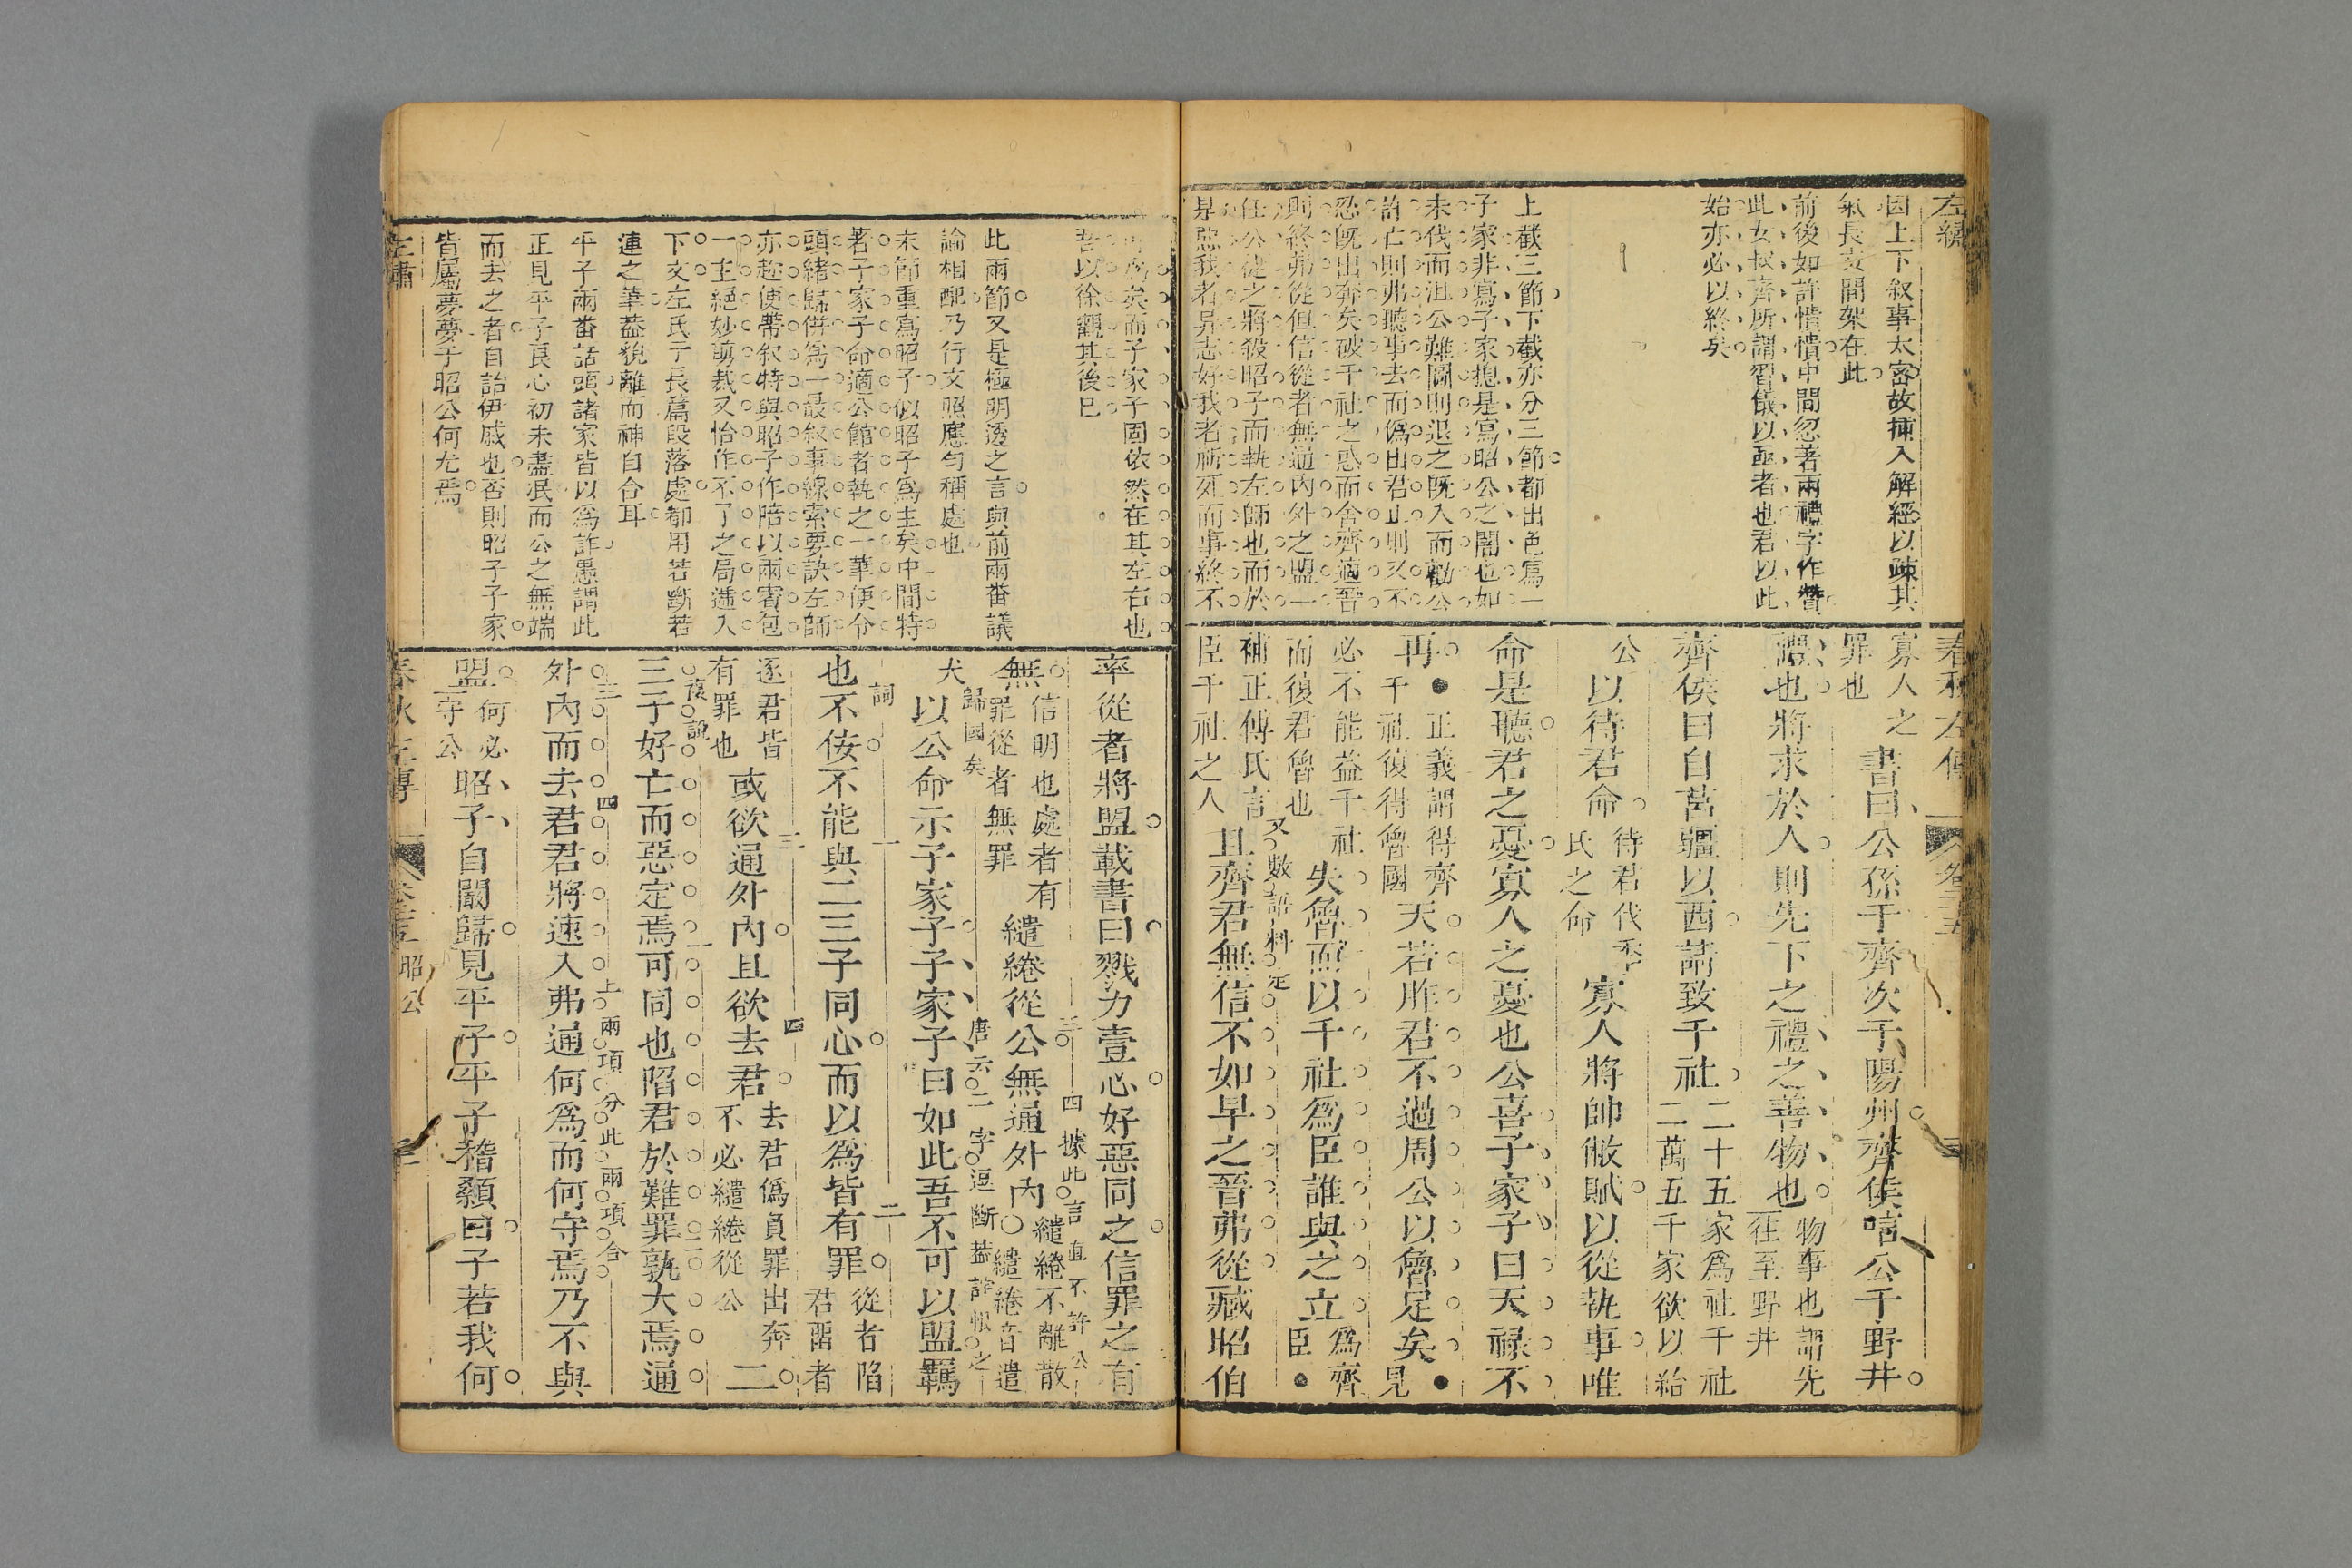 左繡
因上下叙事太密故插入解經以疎其
氣長文間架在此
前後如許憒憒中間忽著兩禮字作贊
此女叔齊所謂習儀以亟者也君以此
始亦必以終矣
上截三節下截亦分三節都出色寫一
子家非寫子家揔是寫昭公之闇也如
未伐而沮公難圖則退之既入而勸公
許亡則弗聽事去而僞出君止則又不
忍旣出奔矣破千社之惑而舍齊適晉
則終弗從但信從者無通內外之盟一
任公徒之將殺昭子而執左師也而於
同惡我者昇志好我者祈死而事終不
春秋左傳
寡人之罪也
書曰公孫于齊次于陽州齊侯唁公于野井
禮也將求於人則先下之禮之善物也物事也謂先往至野井
齊侯曰自莒疆以西請致千社二十五家爲社千社二萬五千家欲以給公
以待君命待君伐季氏之命
寡人將帥敝賦以從執事唯
命是聽君之憂寡人之憂也公喜子家子曰天禄不
再●正義謂得齊千社復得魯國
天若胙君不過周公以魯足矣●見必不能益千社而復君魯也
失魯而以千社爲臣誰與之立爲齊臣●補正傅氏言臣千社之人
又數語料定
且齊君無信不如早之晉弗從臧昭伯
可爲矣而子家子固依然在其左右也
吾以徐觀其後已
此兩節又是極明透之言與前兩番議
論相配乃行文照應勻稱處也
末節重寫昭子似昭子爲主矣中間特
著子家子命適公館者執之一華便令
頭緒歸併爲一最叙事線索要訣左師
亦趁便帶叙特與昭子作陪以兩賓包
一主絕妙剪裁又恰作不了之局遞入
下文左氏于長篇段落處都用若斷若
連之筆葢貌離而神自合耳
平子兩番話頭諸家皆以爲詐愚謂此
正見平子良心初未盡泯而公之無端
而去之者自詒伊戚也否則昭子子家
皆屬夢夢于昭公何尤焉
率從者將盟載書曰戮力壹心好惡同之信罪之有
無信明也處者有罪從者無罪
繾綣從公無通外內繾綣不離散○繾綣音遣犬
三
四
據此言直不許公歸國矣
以公命示子家子子家子曰如此吾不可以盟羈
唐云二字逗斷葢詐恨之詞
也不佞不能與二三子同心而以爲皆有罪從者陷君留者逐君皆有罪也
一
二
或欲通外內且欲去君去君僞負罪出奔不必繾綣從公
三
四
二
三子好亡而惡定焉可同也陷君於難罪孰大焉通
復說
一
二
外內而去君君將速入弗通何爲而何守焉乃不與
三
四
上兩項分此兩項合
盟何必守公
昭子自闞歸見平子平子稽顙曰子若我何
左繡
春秋左傳
昭公